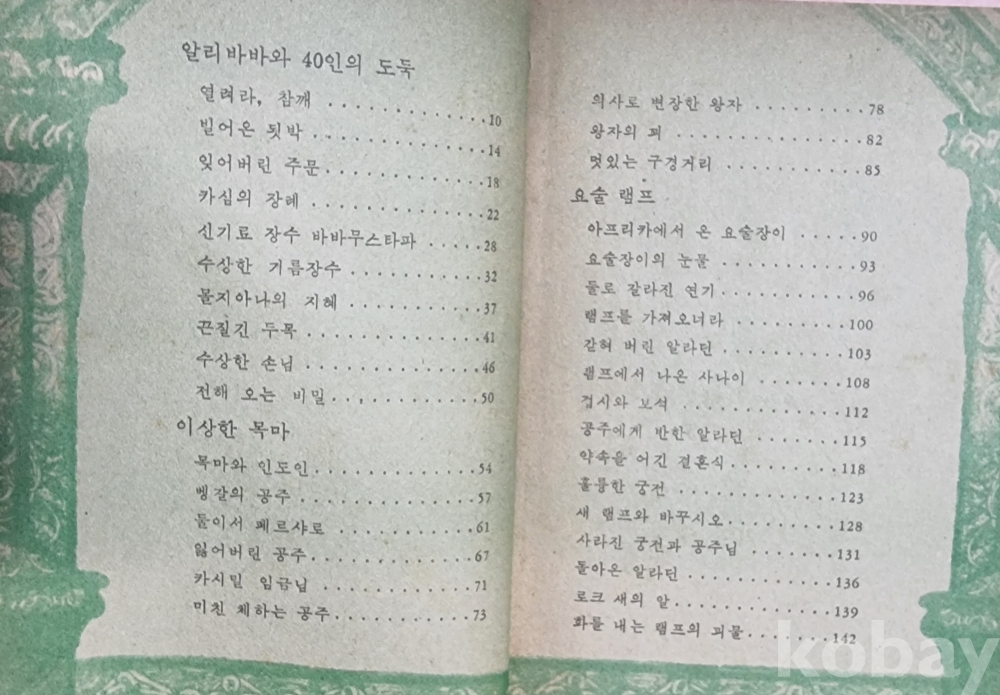 알리바바와 40인의 도둑
열려라, 참깨 . . . . . . . . . . . 10
빌어온 됫박 . . . . . . . . . . . 14
잊어버린 주문 . . . . . . . . . . . 18
카심의 장례 . . . . . . . . . . . 22
신기료 장수 바바무스타파 . . . . . 28
수상한 기름장수 . . . . . . . . . . 32
몰지아나의 지혜 . . . . . . . . . . 37
끈질긴 두목 . . . . . . . . . . . 41
수상한 손님 . . . . . . . . . . . 46
전해 오는 비밀 . . . . . . . . . . . 50
이상한 목마
목마와 인도인 . . . . . . . . . . . 54
벵갈의 공주 . . . . . . . . . . . 57
둘이서 페르샤로 . . . . . . . . . . 61
잃어버린 공주 . . . . . . . . . . . 67
카시밀 임금님 . . . . . . . . . . . 71
미친 체하는 공주 . . . . . . . . . . 73
의사로 변장한 왕자 . . . . . . . . . 78
왕자의 피 . . . . . . . . . . . 82
멋있는 구경거리 . . . . . . . . . . 85
요술 램프
아프리카에서 온 요술장이 . . . . . 90
요술장이의 눈물 . . . . . . . . . . 93
둘로 갈라진 연기 . . . . . . . . . . 96
램프를 가져오너라 . . . . . . . . . 100
갇혀 버린 알라딘 . . . . . . . . . 103
램프에서 나온 사나이 . . . . . . . 108
접시와 보석 . . . . . . . . . . . 112
공주에게 반한 알라딘 . . . . . . . 115
약속을 어긴 결혼식 . . . . . . . . 118
훌륭한 궁전 . . . . . . . . . . . 123
새 램프와 바꾸시오 . . . . . . . . 128
사라진 궁전과 공주님 . . . . . . . 131
돌아온 알라딘 . . . . . . . . . . . 136
로크 새의 알 . . . . . . . . . . . 139
화를 내는 램프의 괴물 . . . . . . . 142
kobay